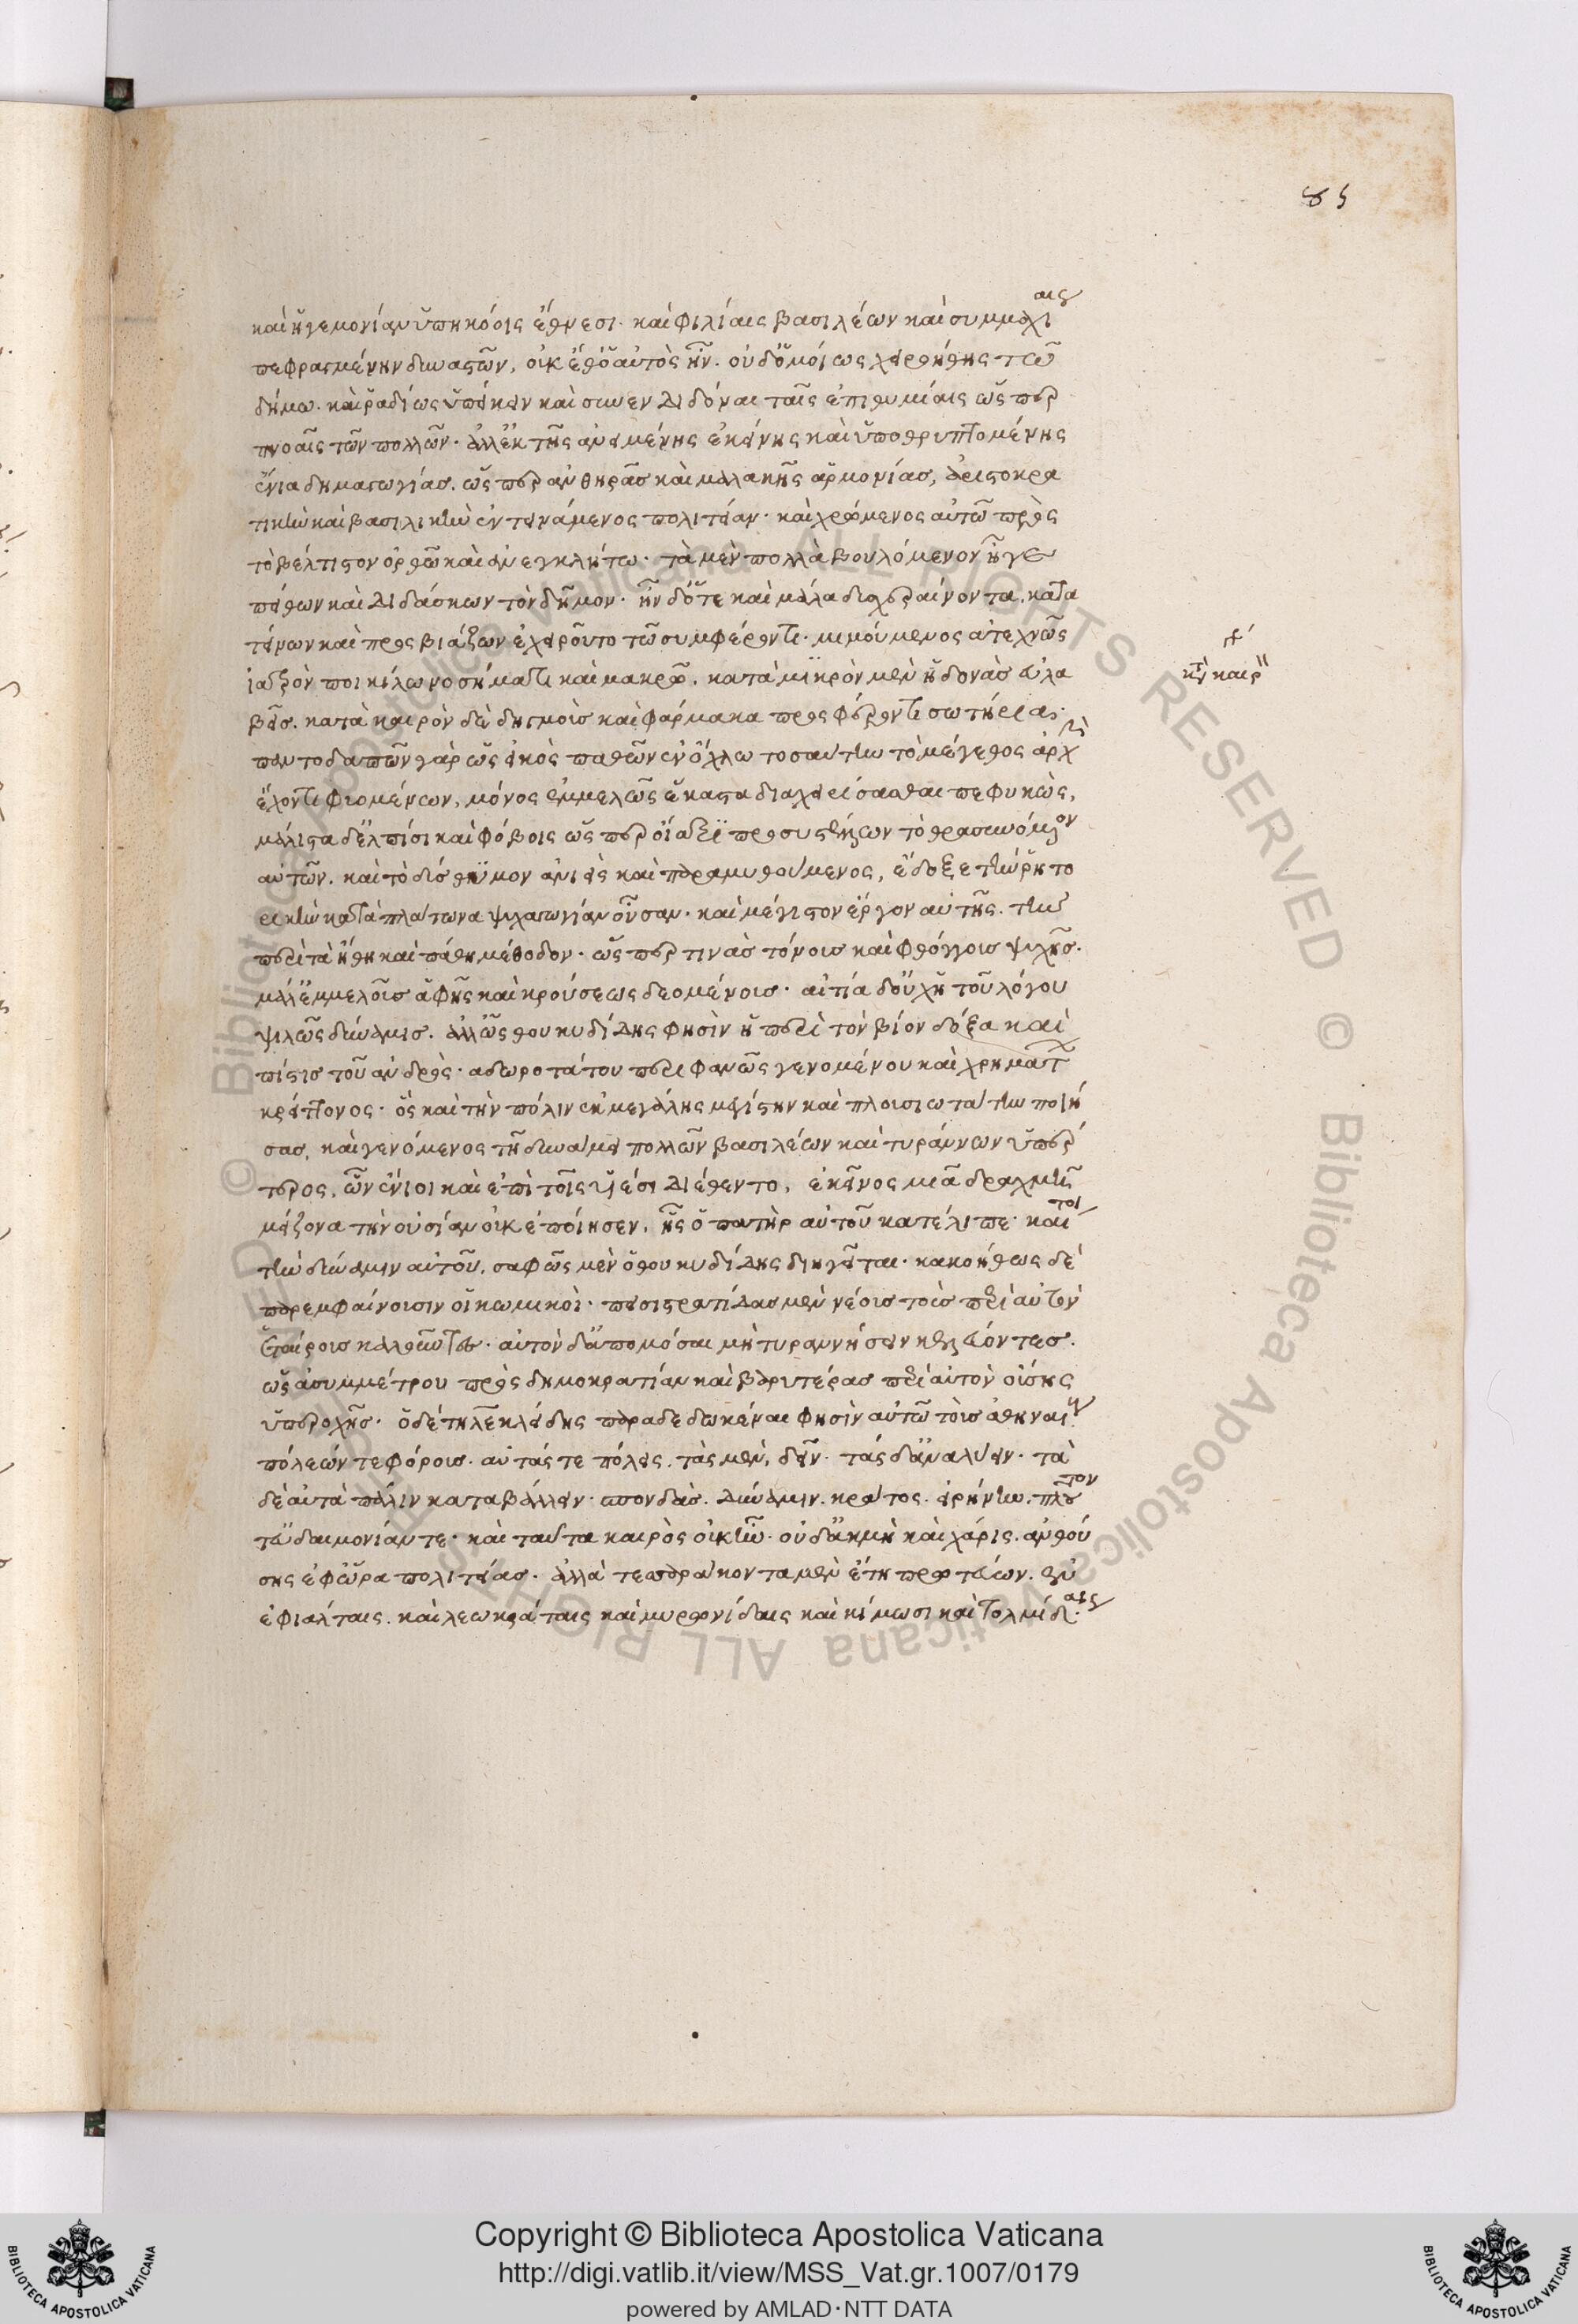 85
καὶ ἡγεμονίαν ὑπηκόοις ἔθνεσι· καὶ φιλίαις βασιλέων καὶ συμμαχίαις
πεφραγμένην δυναστῶν, οὐκ ἔθ' ὁ αὐτὸς ἦν. οὐδ' ὁμοίως χειροήθης τῶ
δήμω. καὶ ῥαδίως ὑπείκειν καὶ συνενδιδόναι ταῖς ἐπιθυμίαις ὥσπερ
πνοαῖς τῶν πολλῶν· ἀλλ' ἐκ τῆς ἀνειμένης ἐκείνης καὶ ὑποθρυπτομένης
ἔνια δημαγωγίας. ὥσπερ ἀνθηρᾶς καὶ μαλακῆς ἁρμονίας, ἀριστοκρα
τικὴν καὶ βασιλικὴν ἐντεινάμενος πολιτείαν· καὶ χρώμενος αὐτῶ πρὸς
τὸ βέλτιστον ὀρθῶ καὶ ἀνεγκλήτω· τὰ μὲν πολλὰ βουλόμενον ἦγε
πείθων καὶ διδάσκων τὸν δῆμον· ἦν δ' ὅτε καὶ μάλα δυσχεραίνοντα. κατα
τείνων καὶ προσβιάζων ἐχειροῦτο τῶ συμφέροντι· μιμούμενος ἀτεχνῶς
ἰατρὸν ποικίλω νοσήματι καὶ μακρῶ. κατὰ μικρὸν μὲν ἡδονὰς ἀβλα
βεῖς. κατὰ καιρὸν δὲ δηγμοῖς καὶ φάρμακα προσφέροντι σωτήρια·
κτὰ καιρ
παντοδαπῶν γὰρ ὡς εἰκὸς παθῶν ἐν ὄχλω τοσαύτην τὸ μέγεθος ἀρχὴν
ἔχοντι φυομένων, μόνος ἐμμελῶς ἕκαστα διαχειρίσασθαι πεφυκὼς,
μάλιστα δ' ἐλπίσι καὶ φόβοις ὥσπερ οἴαξι προσυστέλλων τὸ θρασυνόμενον
αὐτῶν. καὶ τὸ δύσθυμον ἀνιεὶς καὶ παραμυθούμενος, ἔδειξε τὴν ῥητο
ρικὴν κατὰ πλάτωνα ψυχαγωγίαν οὖσαν· καὶ μέγιστον ἔργον αὐτῆς. τὴν
περὶ τὰ ἤθη καὶ πάθη μέθοδον· ὥσπερ τινὰς τόνους καὶ φθόγγους ψυχῆς.
μάλ' ἐμμελοῦς ἁφῆς καὶ κρούσεως δεομένους· αἰτία δ' οὐχ ἡ τοῦ λόγου
ψιλῶς δύναμις. ἀλλ' ὡς θουκυδίδης φησὶν ἡ περὶ τὸν βίον δόξα καὶ
πίστις τοῦ ἀνδρὸς· ἀδωροτάτου περιφανῶς γενομένου καὶ χρημάτων
κρείττονος· ὃς καὶ τὴν πόλιν ἐκ μεγάλης μεγίστην καὶ πλουσιωτάτην ποιή
σας. καὶ γενόμενος τῆ δυνάμει πολλῶν βασιλέων καὶ τυράννων ὑπέρ
τερος. ὧν ἔνιοι καὶ ἐπὶ τοῖς υἱέσι διέθεντο, ἐκεῖνος μιᾶ δραχμῆ
μείζονα τὴν οὐσίαν οὐκ ἐποίησεν. ἧς ὁ πατὴρ αὐτοῦ κατέλιπε· καίτοι
τὴν δύναμιν αὐτοῦ. σαφῶς μὲν ὁ θουκυδίδης διηγεῖται· κακοήθως δὲ
παρεμφαίνουσιν οἱ κωμικοὶ· πεισιστρατίδας μὲν νέους τοὺς περὶ αὐτὸν
ἑταίρους καλοῦντες· αὐτὸν δ' ἀπομόσαι μὴ τυραννήσειν κελεύοντες.
ὡς ἀσυμμέτρου πρὸς δημοκρατίαν καὶ βαρυτέρας περὶ αὐτὸν οὔσης
ὑπεροχῆς. ὁ δὲ τηλεκλείδης παραδεδωκέναι φησὶν αὐτῶ τοὺς ἀθηναίους
πόλεών τε φόρους. αὐτάς τε πόλεις. τὰς μὲν, δεῖν. τάς δ' ἀναλύειν· τὰ
δὲ αὐτὰ πάλιν καταβάλλειν. σπονδὰς. δύναμιν. κράτος. εἰρήνην. πλοῦτον
τ' εὐδαιμονίαν τε· καὶ ταῦτα καιρὸς οὐκ ἦν. οὐδ' ἀκμὴ καὶ χάρις. ἀνθού
σης ἐφ' ὥρα πολιτείας. ἀλλὰ τεσσαράκοντα μὲν ἔτη πρωτεύων. ἐν
ἐφιάλταις. καὶ λεωκράταις καὶ μυρωνίδαις καὶ κίμωσι καὶ τολμίδαις
Copyright © Biblioteca Apostolica Vaticana
http://digi.vatlib.it/view/MSS_Vat.gr.1007/0179
powered by AMLAD·NTT DATA